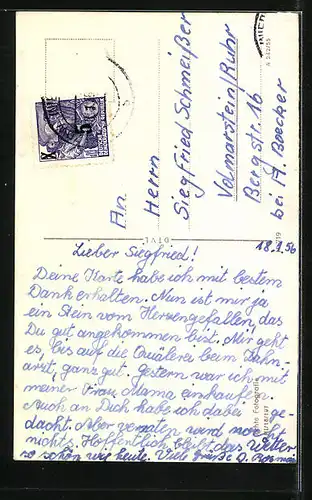 An
Herrn
Siegfried Schmeißer
Volmarstein/Ruhr
Bergstr. 16
bei A. Boecker
18.1.56
Lieber Siegfried!
Deine Karte habe ich mit bestem
Dank erhalten. Nun ist mir ja
ein Stein vom Herzen gefallen, das
Du gut angekommen bist. Mir geht
es, bis auf die Quälerei beim Zahn-
arzt, ganz gut. Gestern war ich mit
meiner Frau Mama einkaufen.
Auch an Dich habe ich dabei ge-
dacht. Aber verraten wird noch
nichts. Hoffentlich bleibt das Wetter
so schön wie heute. Viele Grüße
A 242/55
Echte Fotografie